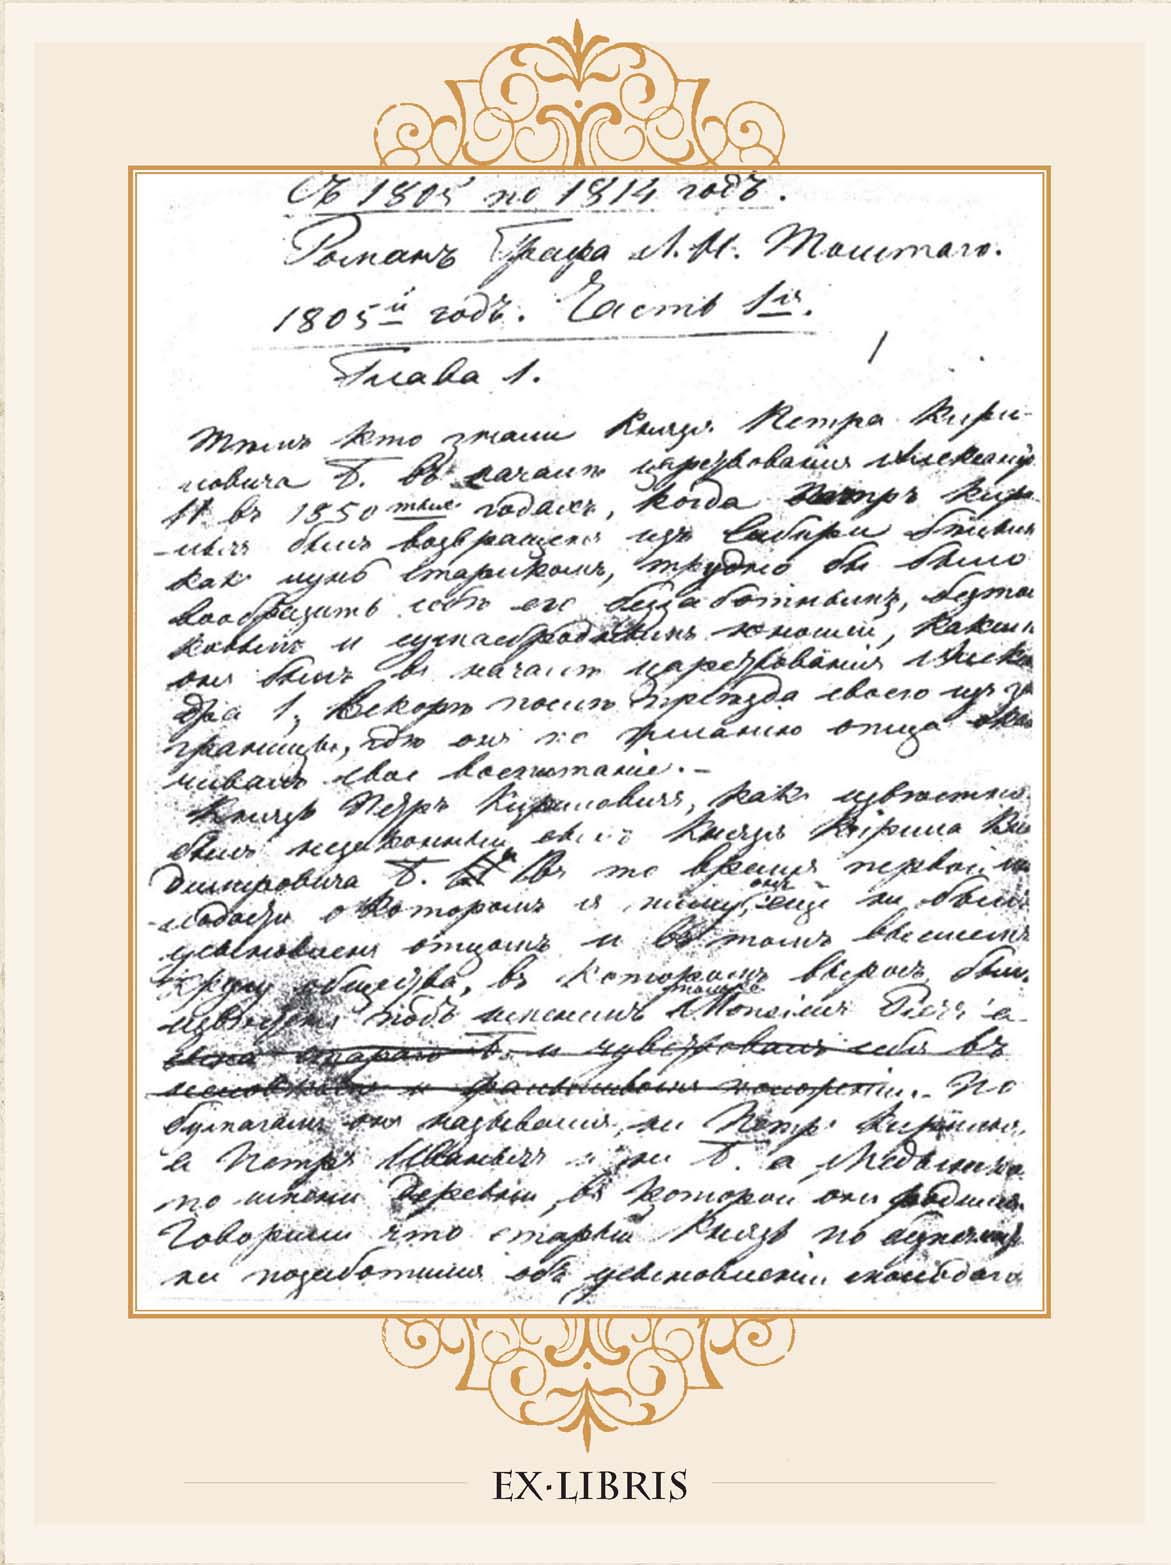 Съ 1805 по 1814 годъ.
Романъ Графа Л. Н. Толстаго.
1805й годъ. Часть 1я.
Глава 1.
Тѣмъ кто знали Князя Петра Кири-
ловича Б. въ началѣ царствованія Александра
II въ 1850тыхъ годахъ, когда Петръ Кири-
лычъ былъ возвращенъ изъ Сибири бѣлымъ
какъ лунь старикомъ, трудно бы было
вообразить себѣ его беззаботнымъ, безтол
ковымъ и сумасброднымъ юношей, какимъ
онъ былъ въ началѣ царствованія Алексан
дра 1, вскорѣ послѣ пріѣзда своего изъ за
границы, гдѣ онъ по желанію отца окан
чивалъ свое воспитаніе.-
Князь Петръ Кириловичъ, какъ извѣстно,
былъ незаконный сынъ Князя Кирила Вла
димировича Б. Въ то время первой мо
лодости о которомъ я пишу, онъ еще не былъ
усыновленъ отцомъ и въ томъ высшемъ
кругу общества, въ которомъ выросъ, былъ
извѣстенъ подъ именемъ только Monsieur Pierr'а
сына стараго Б. и чувствовалъ себя въ
положеніи. По
бумагамъ онъ назывался, не Петръ Кирилычъ,
а Петръ Иванычъ и не Б. а Медынскій
по имени деревни, въ которой онъ родился.
Говорили что старый Князь по
не позаботился объ усыновленіи
EX·LIBRIS